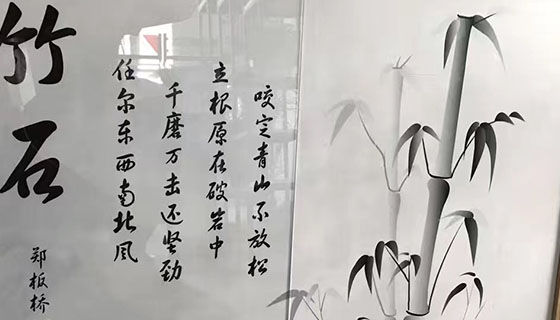 咬定青山不放松
立根原在破岩中
千磨万击还坚劲
任尔东西南北风
竹石
郑板桥